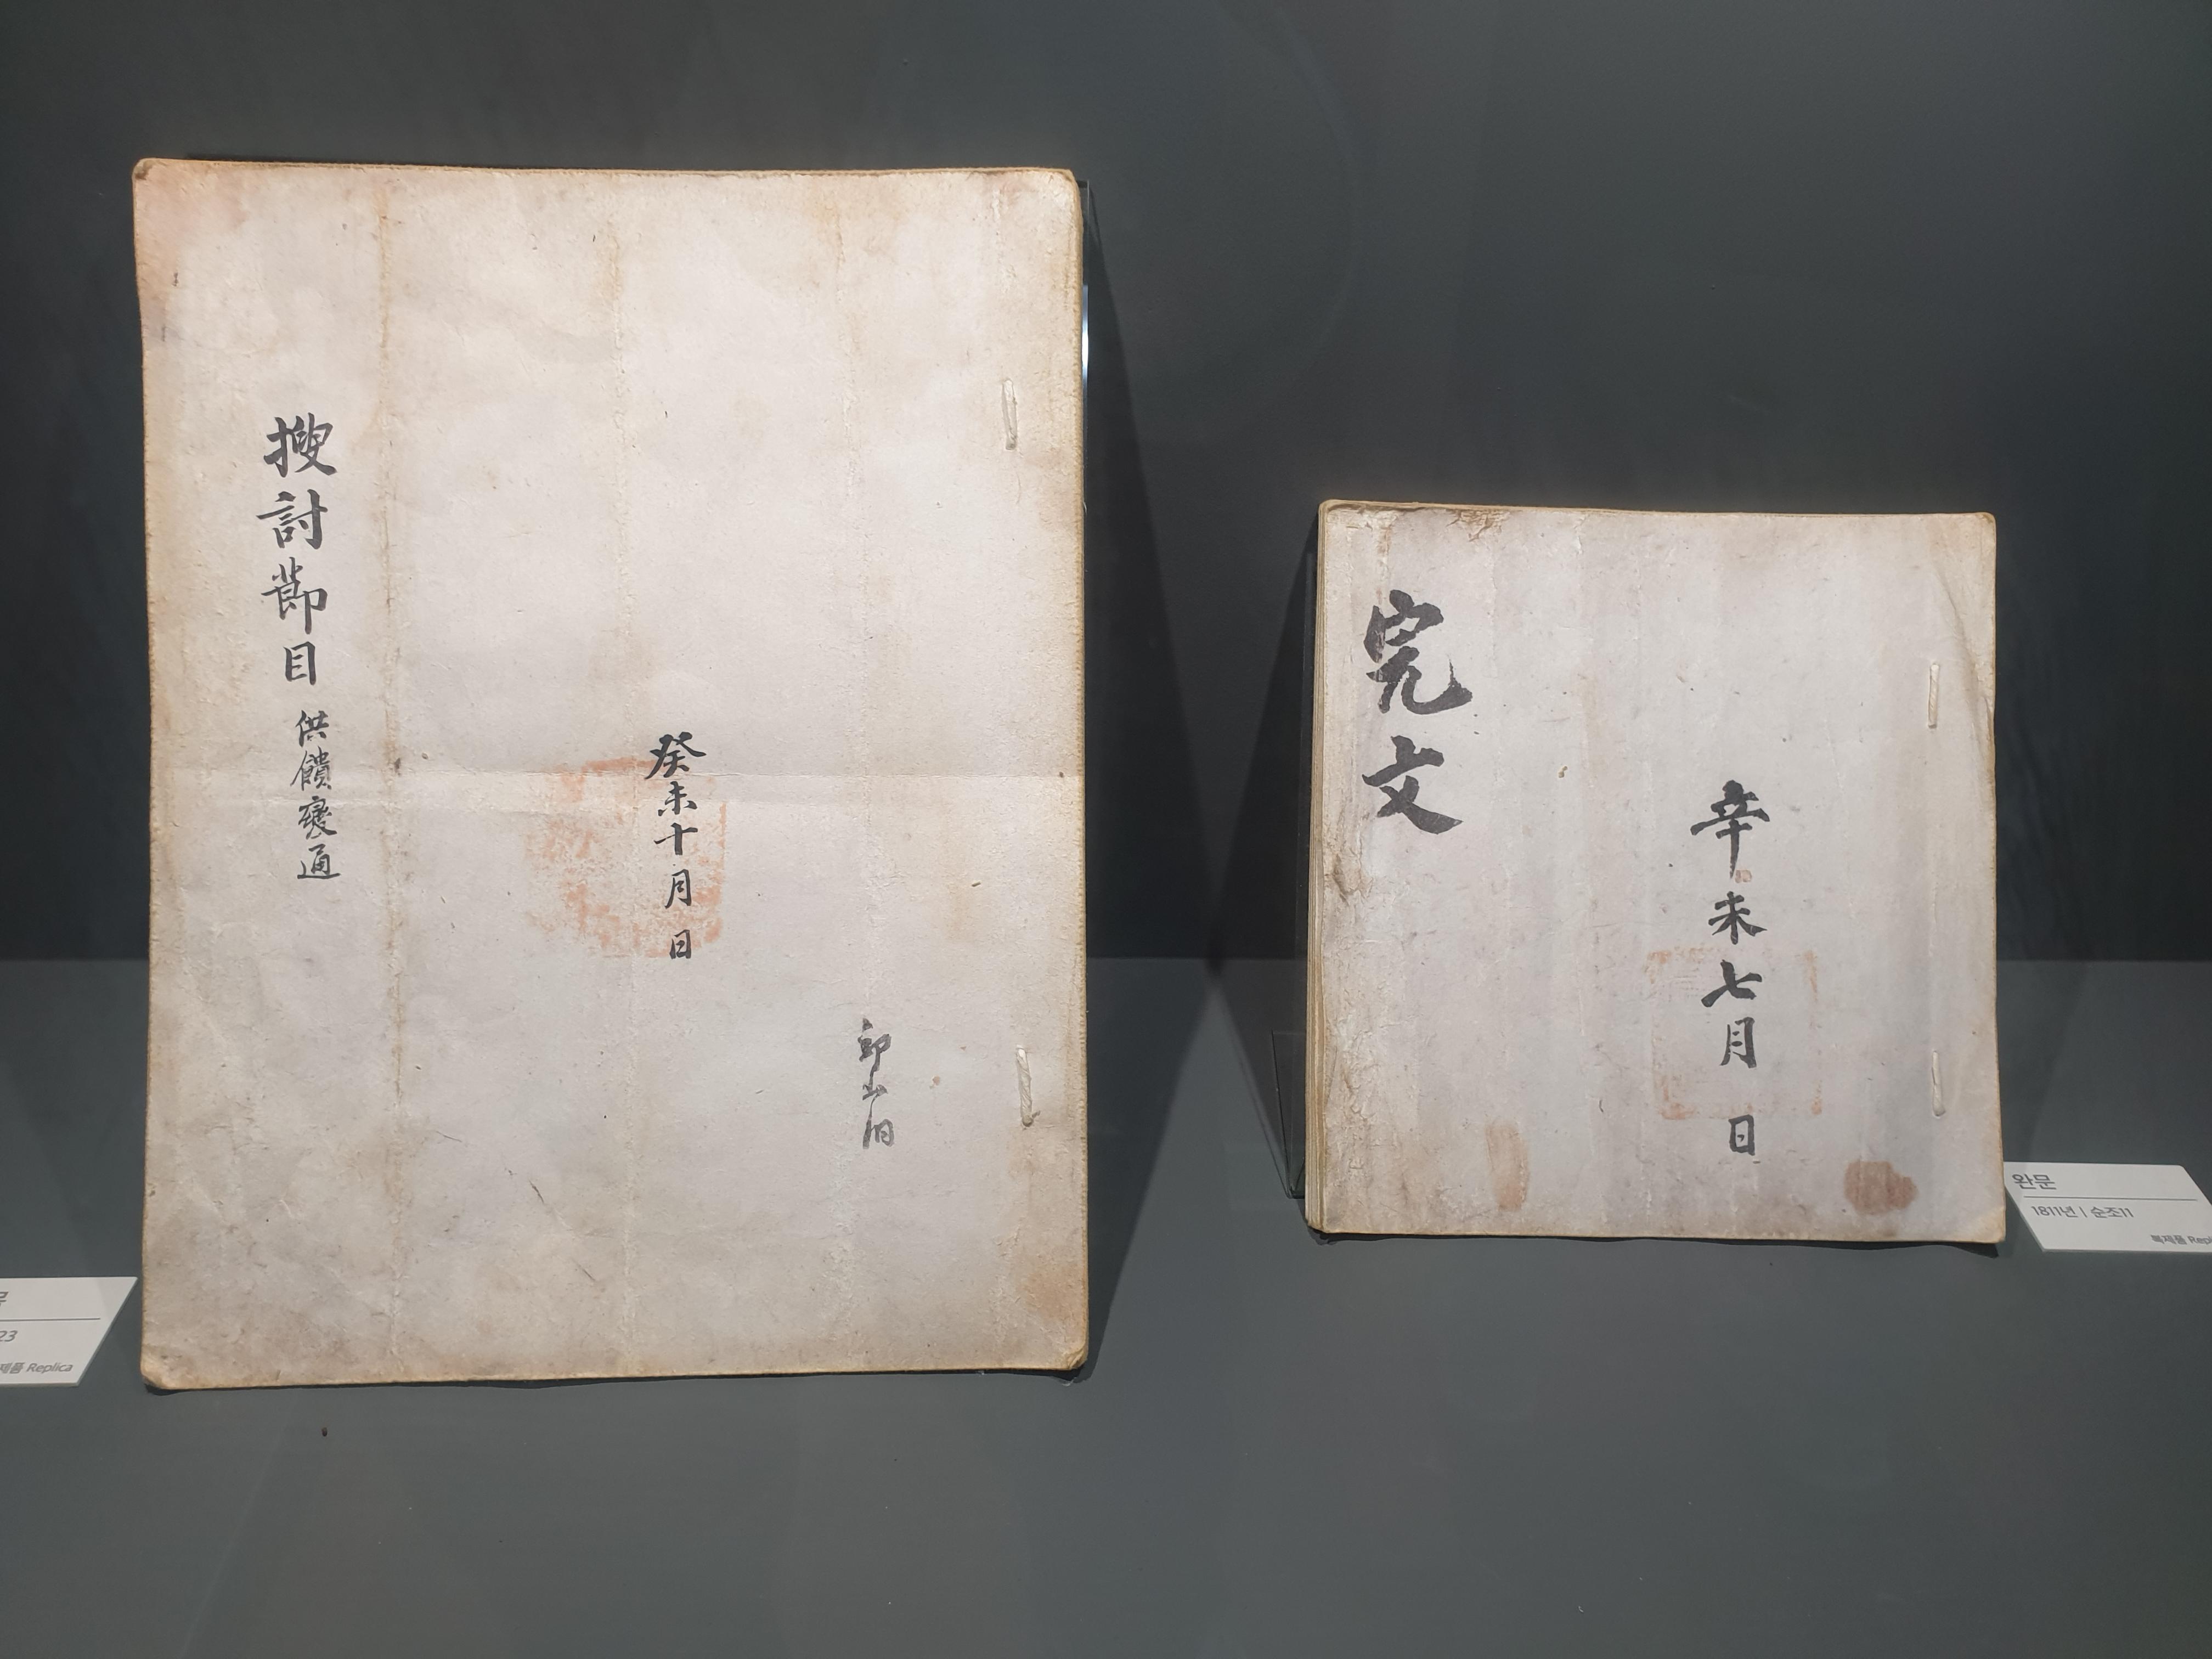 搜討節目 供饋變通
癸未十月 日
完文
辛未七月 日
완문
1811년 | 순조11
복제품 Repl
23
제품 Replica